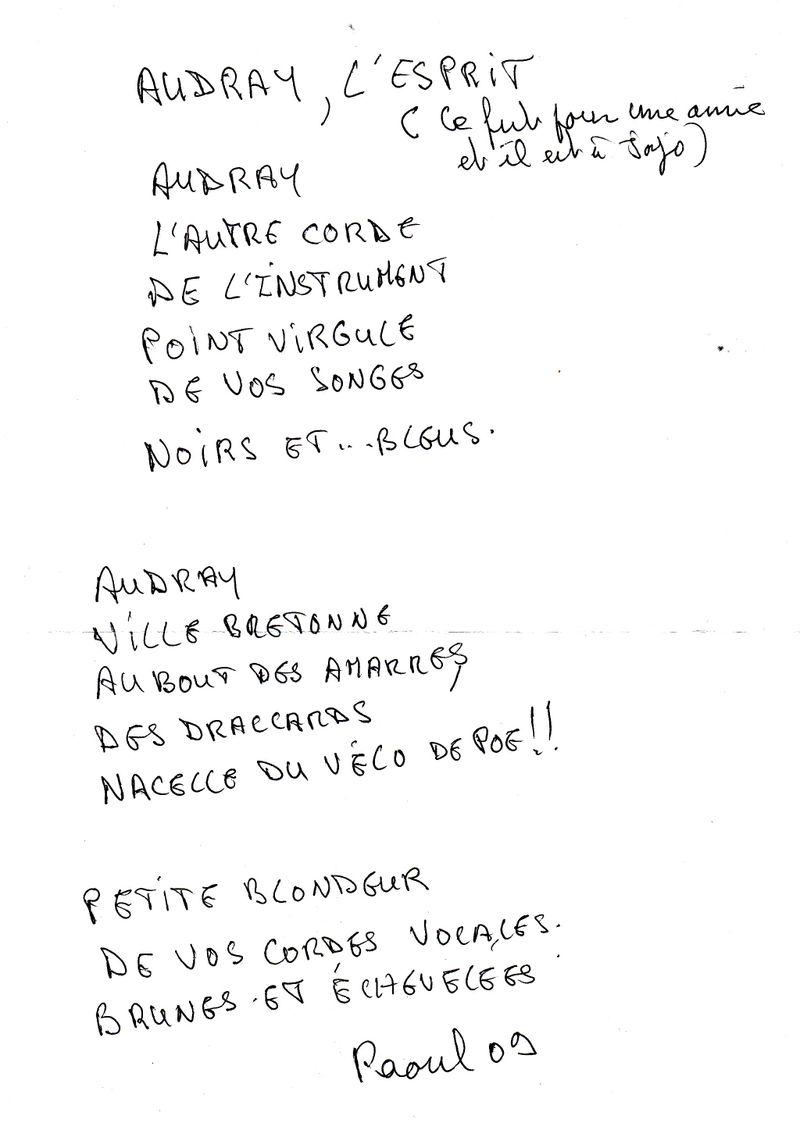 AUDRAY, L'ESPRIT
(Ce fut pour une amie
et il est à Jojo)
AUDRAY
L'AUTRE CORDE
DE L'INSTRUMENT
POINT VIRGULE
DE VOS SONGES
NOIRS ET...BLEUS.
AUDRAY
VILLE BRETONNE
AU BOUT DES AMARRES,
DES DRACCARDS
NACELLE DU VÉLO DE POE!!
PETITE BLONDEUR
DE VOS CORDES VOCALES.
BRUNES ET ÉCHEVELEES
Raoul 09